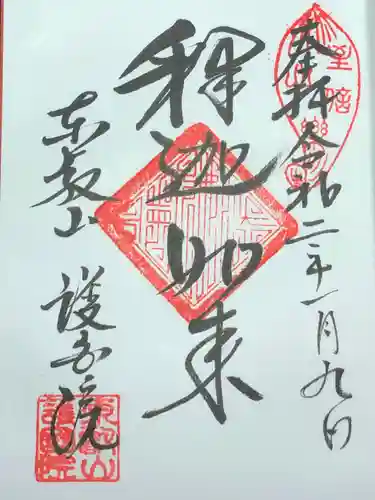 奉拝 令和二年一月九日
釋迦如来
東叡山 護国院